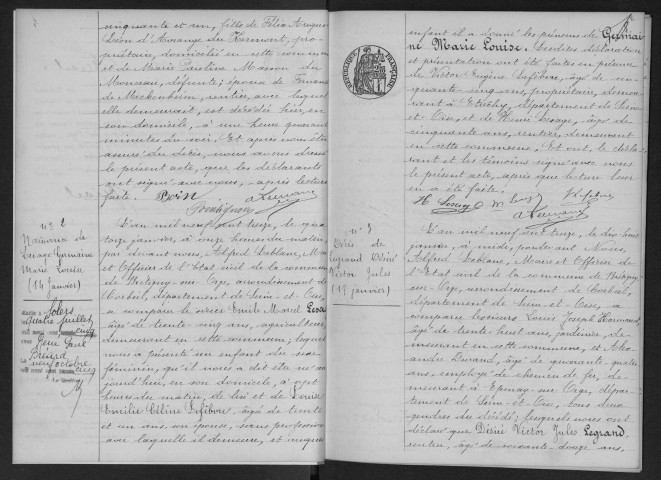 cinquante et un, fille de Félix Auguste
Léon d'Amange du Kermont, pro-
priétaire, domicilié en cette commune
et de Marie Pauline Masson du
Monceau, défunte; épouse de
de Meckenheim, rentier, avec lequel
elle demeurait, est décédée hier, en
son domicile, à une heure quarante
minutes du soir. Et après nous être
assuré du décès, nous avons dressé
le présent acte, que les déclarants
ont signé avec nous, après lecture
faite.
n° 2
Naissance de
Lesage Germaine
Marie Louise
(14 janvier)
L'an mil neuf cent treize, le qua-
torze janvier, à onze heures du matin,
par devant nous, Alfred Leblanc, Mai-
re et Officier de l'Etat civil de la commune
de Bretigny-sur-Orge, arrondissement de
Corbeil, département de Seine-et-Oise,
a comparu le sieur Emile Marcel Lesage
âgé de trente cinq ans, agriculteur,
demeurant en cette commune; lequel
nous a présenté un enfant du sexe
féminin, qu'il nous a dit être né au-
jourd'hui, en son domicile, à sept
heures du matin, de lui et de Louise
Emilie Céline Lefèbvre, âgée de trente
et un ans, son épouse, sans profession
avec laquelle il demeure, et auquel
Solers
quatre juillet
cinq
René Paul
Briard
neuf octobre
cinq
enfant il a donné les prénoms de Germai-
ne Marie Louise. Lesdites déclaration
et présentation ont été faites en présence
de Victor Eugène Lefèbvre, âgé de cin-
quante cinq ans, propriétaire, demeu-
rant à Etréchy, département de Seine-
et-Oise, et de Henri Lesage, âgé de
cinquante ans, rentier, demeurant
en cette commune. Et ont, le décla-
rant et les témoins signé avec nous
le présent acte, après que lecture leur
en a été faite.
REPUBLIQUE FRANÇAISE
n° 3
Décès de
Legrand Désiré
Victor Jules
(19 janvier)
L'an mil neuf cent treize, le dix-neuf
janvier, à midi, pardevant Nous,
Alfred Leblanc, Maire et Officier de
l'Etat civil de la commune de Bretigny-
sur-Orge, arrondissement de Corbeil,
département de Seine-et-Oise, a
comparu les sieurs Louis Joseph
âgé de trente huit ans, jardinier, de-
meurant en cette commune, et Ale-
xandre Durand, âgé de quarante quatre
ans, employé de chemin de fer, de-
meurant à Epinay-sur-Orge, dépar-
tement de Seine-et-Oise, tous deux
gendres du décédé; lesquels nous ont
déclaré que Désiré Victor Jules Legrand,
rentier, âgé de soixante-douze ans,